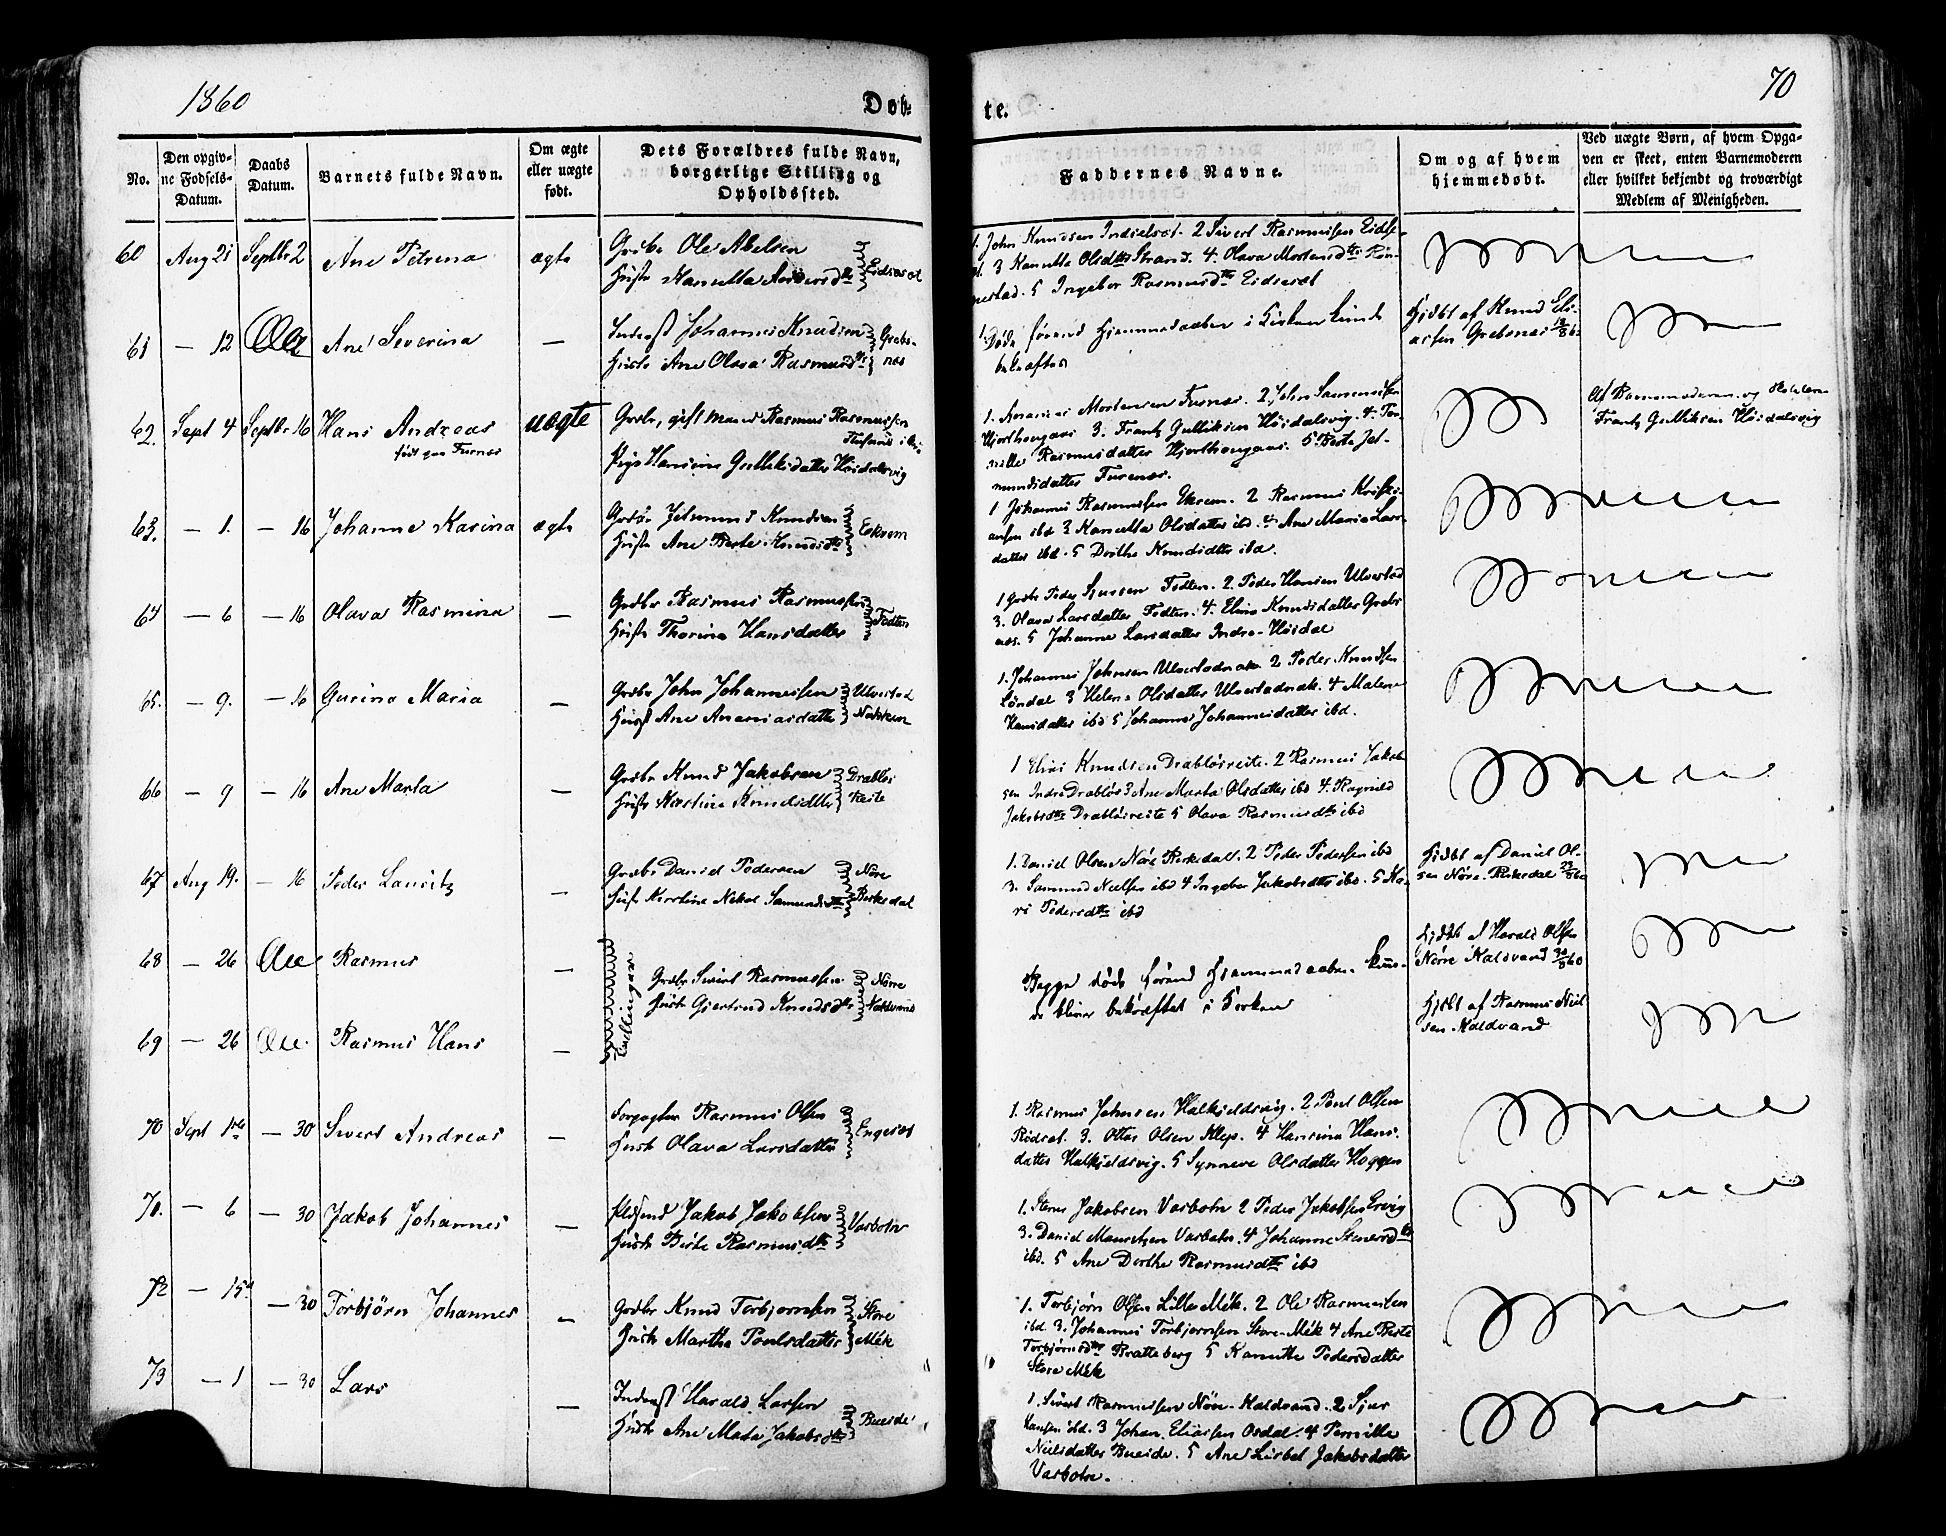 1860
Døb-
te.
70
No.
Den opgiv-
ne Fødsels-
Datum.
Daabs
Datum.
Barnets fulde Navn.
Om ægte
eller uægte
født.
Dets Forældres fulde Navn,
borgerlige Stilling og
Opholdssted.
Faddernes Navne.
Om og af hvem
hjemmedøbt.
Ved uægte Børn, af hvem Opga-
ven er skeet, enten Barnemoderen
eller hvilket bekjendt og troværdigt
Medlem af Menigheden.
60 Aug 21 Septbr 2 Ane Petrina ægte
Grbr Ole Abelsen
Hustr Kanutta
Eidsæt
1. John Knudsen Indselset. 2 Sivert Rasmussen Eidse-
3 Kanutta Olsdtr Strand. 4. Olava Mortensdtr Røn-
nestad. 5 Ingebor Rasmusdtr Eidsesæt
61 — 12 Ane Severina —
Inderst Johannes Knudsen
Hustr Ane Olava Rasmusdtr
Grebs-
næs
Døde førend Hjemmedaaben i Kirken kunde
bekræftes
Hjdbt af Knud Eli-
assen Grebsnæs
62. Sept 4 Septbr 16 Hans Andreas uægte
født paa Furnæs
Grdbr, gift Mand Rasmus Rasmussen
Pige Hansine Gulliksdatter Høidalsvig
1. Mortensen Furnæs. 2 John
Hjorthougaas 3. Frantz Gulliksen Høidalsvig. 4. Per-
nille Rasmusdatter Hjorthougaas. 5 Berte Jet-
mundsdatter Furenæs.
Af Barnemoderen og
Frantz Gulliksen Høidalsvig
63. — 1. — 16 Johanne Karina ægte
Grdbr Jetmund Knudsen
Hustr Ane Berte Knudsdtr
Eskrem
1 Johannes Rasmussen Ekrem. 2 Rasmus Kristi-
ansen ibd 3 Kanutta Olsdatter ibd. 4 Ane Maria Lars-
datter ibd. 5 Dorthe Knudsdtr ibd.
64 — 6 — 16 Olava Rasmina —
Grdbr Rasmus Rasmussen
Hustr Thorina Hansdatter
Fodten
1 Grbr Peder Fodten. 2 Peder Hansen Ulvestad
3. Olava Larsdatter Fodten. 4. Elina Knudsdatter Grebs
næs. 5 Johanne Larsdatter Indre-Høidal
65. — 9. — 16 Gurina Maria —
Grdbr John Johannessen
Hustr Ane Ananiasdatter
Ulvestad
Nakken
1. Johannes Johnsen Ulvestadnak. 2 Peder Knudsen
Løndal 3 Helene Olsdatter Ulvestadnak. 4 Malene
Hansdatter ibd 5 Johanne Johannesdatter ibd.
66 — 9 — 16 Ane Marta —
Grdbr Knud Jakobsen
Hustr Kirstine Knudsdtr
Drabløs
Reite
1 Elias Knudsen Drabløsreite. 2 Rasmus Jakob
sen Indre Drabløs 3 Ane Marta Olsdatter ibd 4. Ragnild
Jakobsdtr Drabløsreite 5 Olava Rasmusdtr ibd
67 Aug 19. — 16 Peder Lauritz —
Grdbr David Pedersen
Hustr Kirstine Nikol Samundsdtr
Nøre
Birkedal
1. Daniel Olsen Nøre Birkedal. 2 Peder Pedersen ibd
3. Samund Nielsen ibd 4 Ingebor Jakobsdtr ibd. 5 Ka-
ri Pedersdtr ibd
Hjdbt af Daniel Ol-
sen Nøre Birkedal
68 — 26 Rasmus —
Tvillinger
Grdbr Sivert Rasmussen
Hustr Gjertrud Knudsdtr
Nørre
Naldvand
Begge døde førend Hjemmedaaben kun-
de bliver bekræftet i Kirken
Hjdbt af Harald Olsen
Nøre Naldvand
69 — 26 Rasmus Hans —
Hjdbt af Rasmus Niel
sen Naldvand
70 Sept — 30 Sivert Andreas —
Forpagter Rasmus Olsen
Hustr Olava Larsdatter
Engeset
1. Rasmus Johnsen Halkjeldsvig. 2 Poul Olsen
Rødset. 3. Ottar Olsen Klep. 4 Hansina Hans-
datter Halkjeldsvig. 5 Synneve Olsdatter Hoggen
70. — 6 — 30 Jakob Johannes —
Jakob Jakobsen
Hustr Birte Rasmusdtr
Varbotn
1. Stener Jakobsen Varbotn 2 Peder Jakobsen Ervig
3. David Mauritzen Varbotn. 4 Johanne Stenersdtr
ibd. 5 Ane Dorthe Rasmusdtr ibd
72 — 15 — 30 Torbjørn Johannes —
Grdbr Knud Torbjørnsen
Hustr Martha Poulsdatter
Store
Mék
1. Torbjørn Olsen Lille Mék. 2 Ole Rasmussen
ibd 3. Johannes Torbjørnsen Store-Mék 4 Ane Berte
Torbjørnsdtr Bratteberg 5 Kanutte Pedersdatter
Store Mék
73 — 1 — 30 Lars —
Inderst Harald Larsen
Hustr Ane Marta Jakobsdtr
Bueide
1. Sivert Rasmussen Nøre-Naldvand. 2 Sjur
Hansen ibd. 3 Johan Eliassen Osdal. 4 Pernille
Nielsdatter Bueide. 5 Ane Lisbet Jakobsdatter
Varbotn.